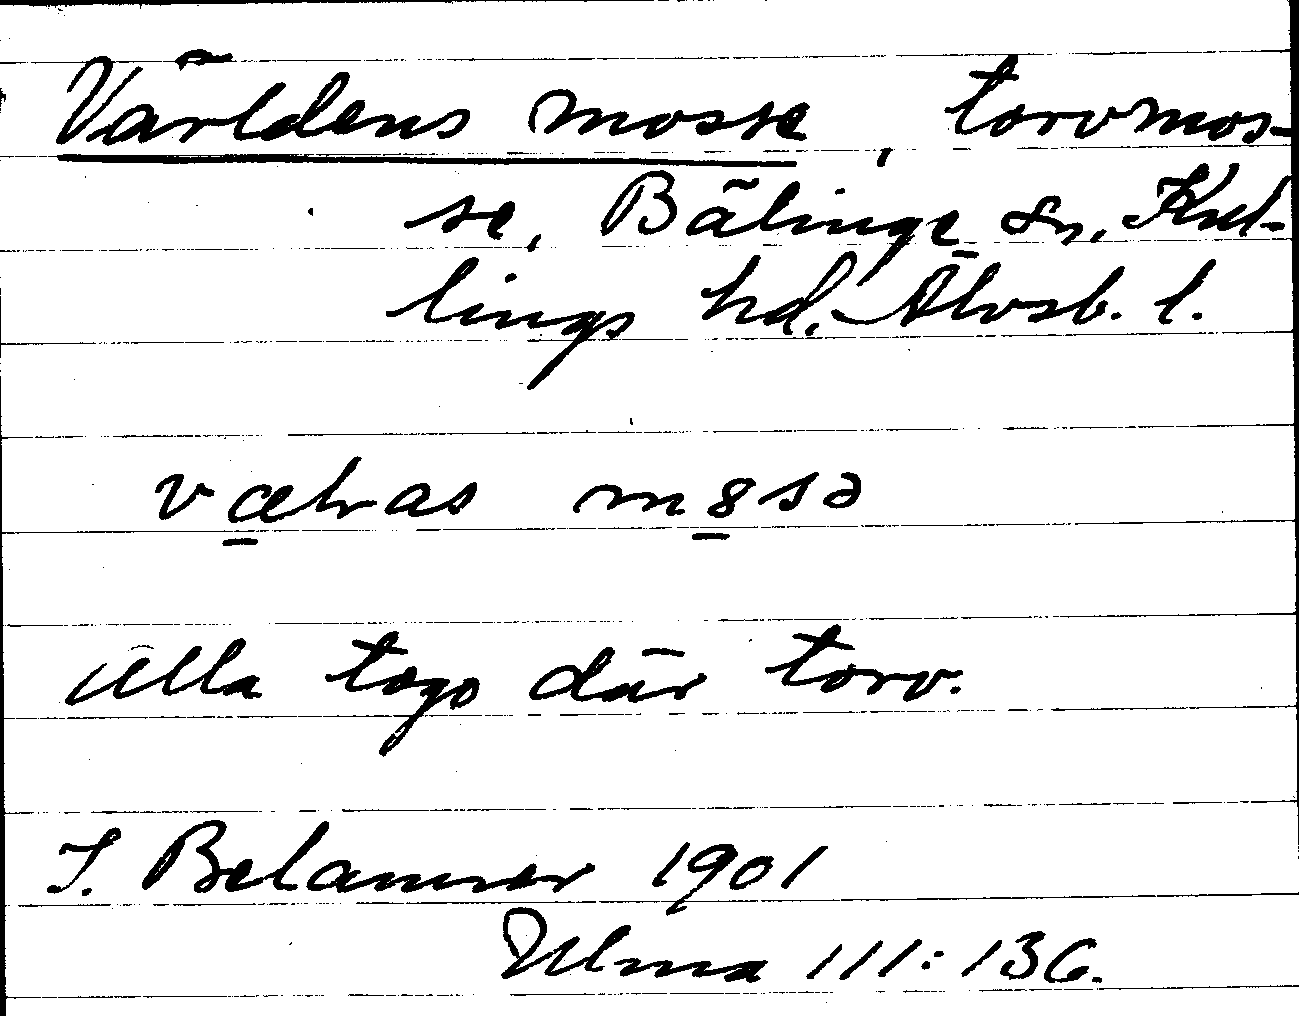 Världens mosse, torvmos-
se, Bälinge sn, Kul-
lings hd. Älvsb. l.
vælras m8sə
Alla togo där torv.
S. Belanner 1901
Ulma 111:136.